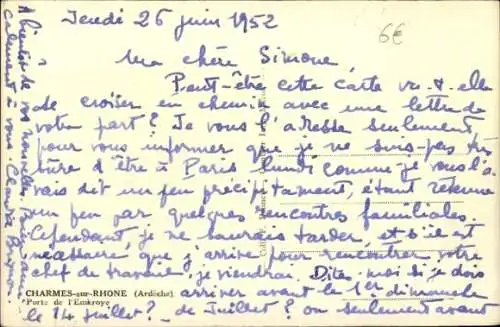 Jeudi 26 juin 1952
6€
Ma chère Simone,
Peut-être cette carte va-t-elle
se croiser en chemin avec une lettre de
votre part? Je vous l'adresse seulement
pour vous informer que je ne suis pas très
sûre d'être à Paris lundi comme je vous l'a-
vais dit un peu précipitamment, étant retenue
un peu par quelques rencontres familiales.
Cependant, je ne saurais tarder, et s'il est
nécessaire que j'arrive pour rencontrer votre
chef de travail je viendrai. Dites-moi si je dois
arriver avant le 1er dimanche
de Juillet? ou seulement avant
le 14 juillet?
A bientôt de vos nouvelles. Bien ami-
calement à vous. Claude
CHARMES-sur-RHONE (Ardèche)
Porte de l'Emkroye